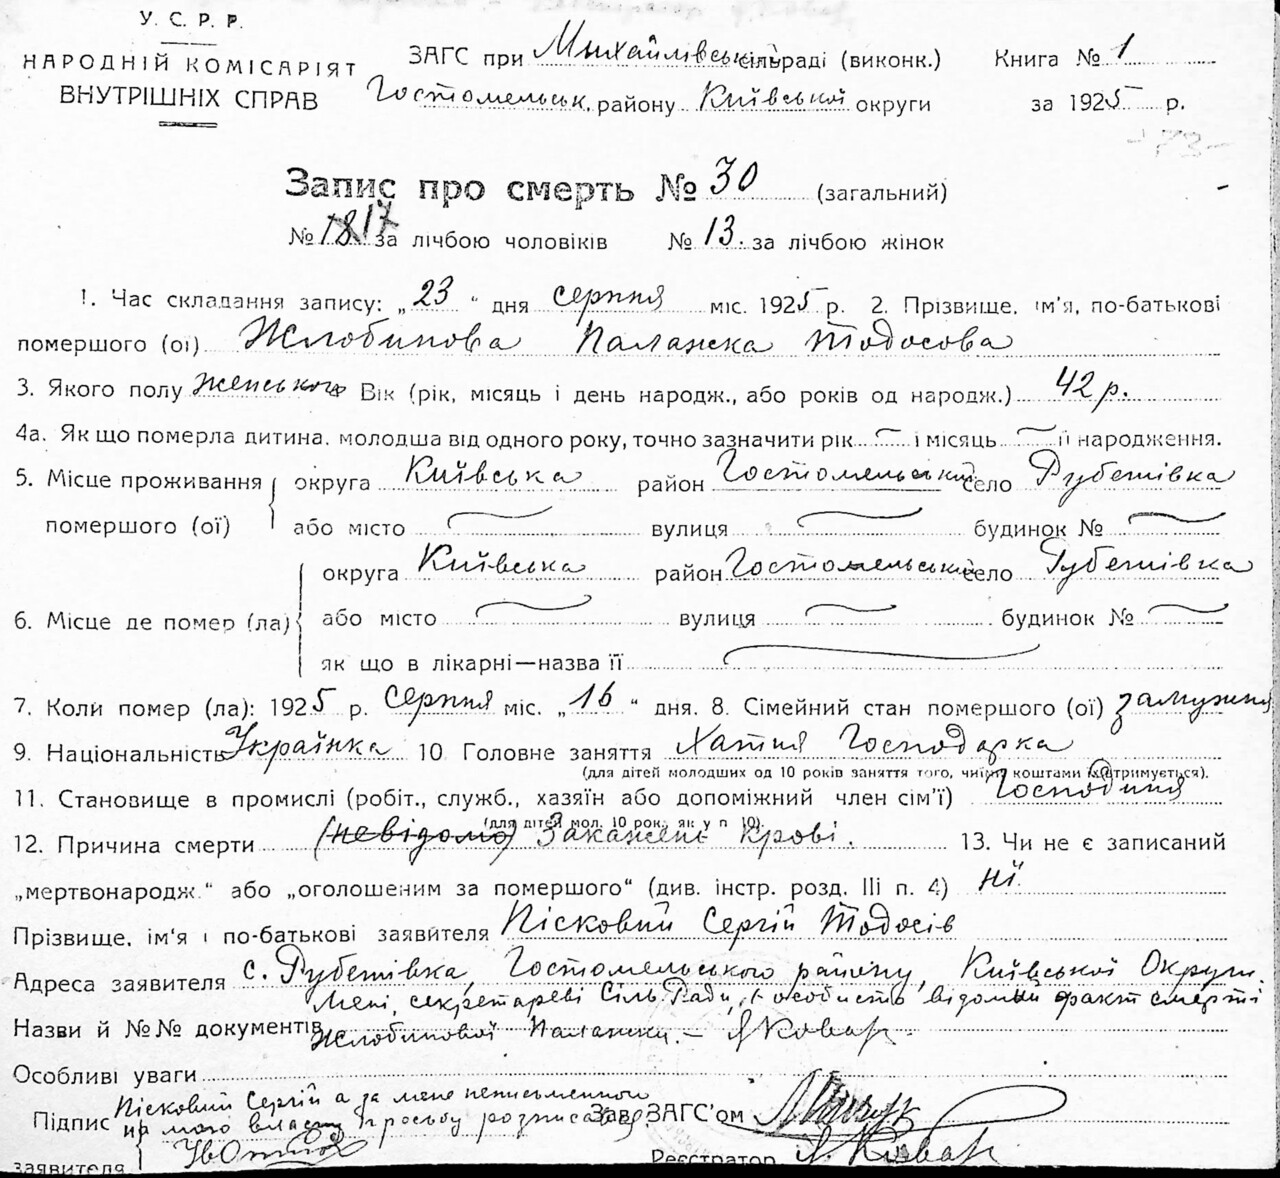 У. С. Р. Р.
НАРОДНІЙ КОМІСАРІЯТ
ВНУТРІШНІХ СПРАВ
ЗАГС при Михайлівській сільраді (виконк.) Книга № 1
Гостомельськ. району Київської округи за 1925 р.
-73-
Запис про смерть № 30 (загальний)
№ 18 17 за лічбою чоловіків № 13. за лічбою жінок
1. Час складання запису: „23“ дня серпня міс. 1925 р. 2. Прізвище, ім'я, по-батькові
помершого (ої) Жлобинова Палажка Тодосова
3. Якого полу Женського Вік (рік, місяць і день народж., або років од народж.) 42 р.
4а. Як що померла дитина, молодша від одного року, точно зазначити рік — і місяць — її народження.
5. Місце проживання округа Київська район Гостомельський село Рубешівка
помершого (ої) або місто — вулиця — будинок № —
округа Київська район Гостомельський село Рубешівка
6. Місце де помер (ла) або місто — вулиця — будинок № —
як що в лікарні—назва її —
7. Коли помер (ла): 1925 р. серпня міс. „16“ дня. 8. Сімейний стан помершого (ої) замужня
9. Національність Українка 10 Головне заняття Хатня Господарка
(для дітей молодших од 10 років заняття того, чиїми коштами утримується).
11. Становище в промислі (робіт., служб., хазяїн або допоміжний член сім'ї) Господиня
(для дітей мол. 10 рок. як у п 10).
12. Причина смерти (невідомо) Закаженє крові. 13. Чи не є записаний
„мертвонародж.“ або „оголошеним за помершого“ (див. інстр. розд. III п. 4) ні
Прізвище, ім'я і по-батькові заявителя Пісковий Сергій Тодосів
Адреса заявителя с. Рубешівка, Гостомельського району, Київської Округи.
Мені, секретареві Сіль Ради, особисто відомий факт смерті
Назви й №№ документів Жлобинової Палажки. — Я Ковар
Особливі уваги
Пісковий Сергій а за мене неписьменного
Підпис на мою власну просьбу розписався Зав. ЗАГС'ом
заявителя Реєстратор Я. Ковар